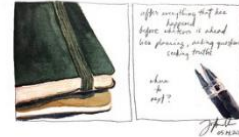 after everything that has
happened
before whatever is ahead
lies planning, asking question
seeking truths
when
to
rest?